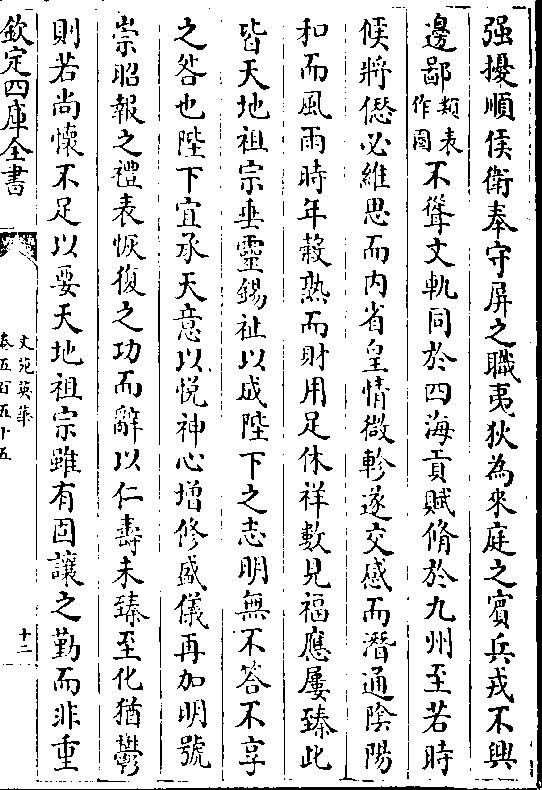 强擾順侯衛奉守屏之職夷狄為來庭之賔兵戎不興
邊鄙類表作圄不聳文軌同於四海貢賦脩於九州至若時
候將愆必維思而内省皇情微軫遂交感而潛通陰陽
和而風雨時年榖熟而財用足休祥數見福應屢臻此
皆天地祖宗垂靈錫祉以成陛下之志明無不答不享
之咎也陛下宜承天意以悦神心增修盛儀再加明號
崇昭報之禮表恢復之功而辭以仁壽未臻至化猶鬱
則若尚懷不足以要天地祖宗雖有固讓之勤而非重
欽定四庫全書
文苑英華
卷五百五十五
十二